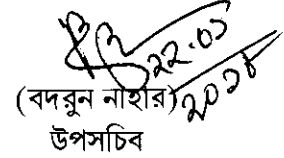 ২২.০১
২০১৮
(বদরুন নাহার)
উপসচিব